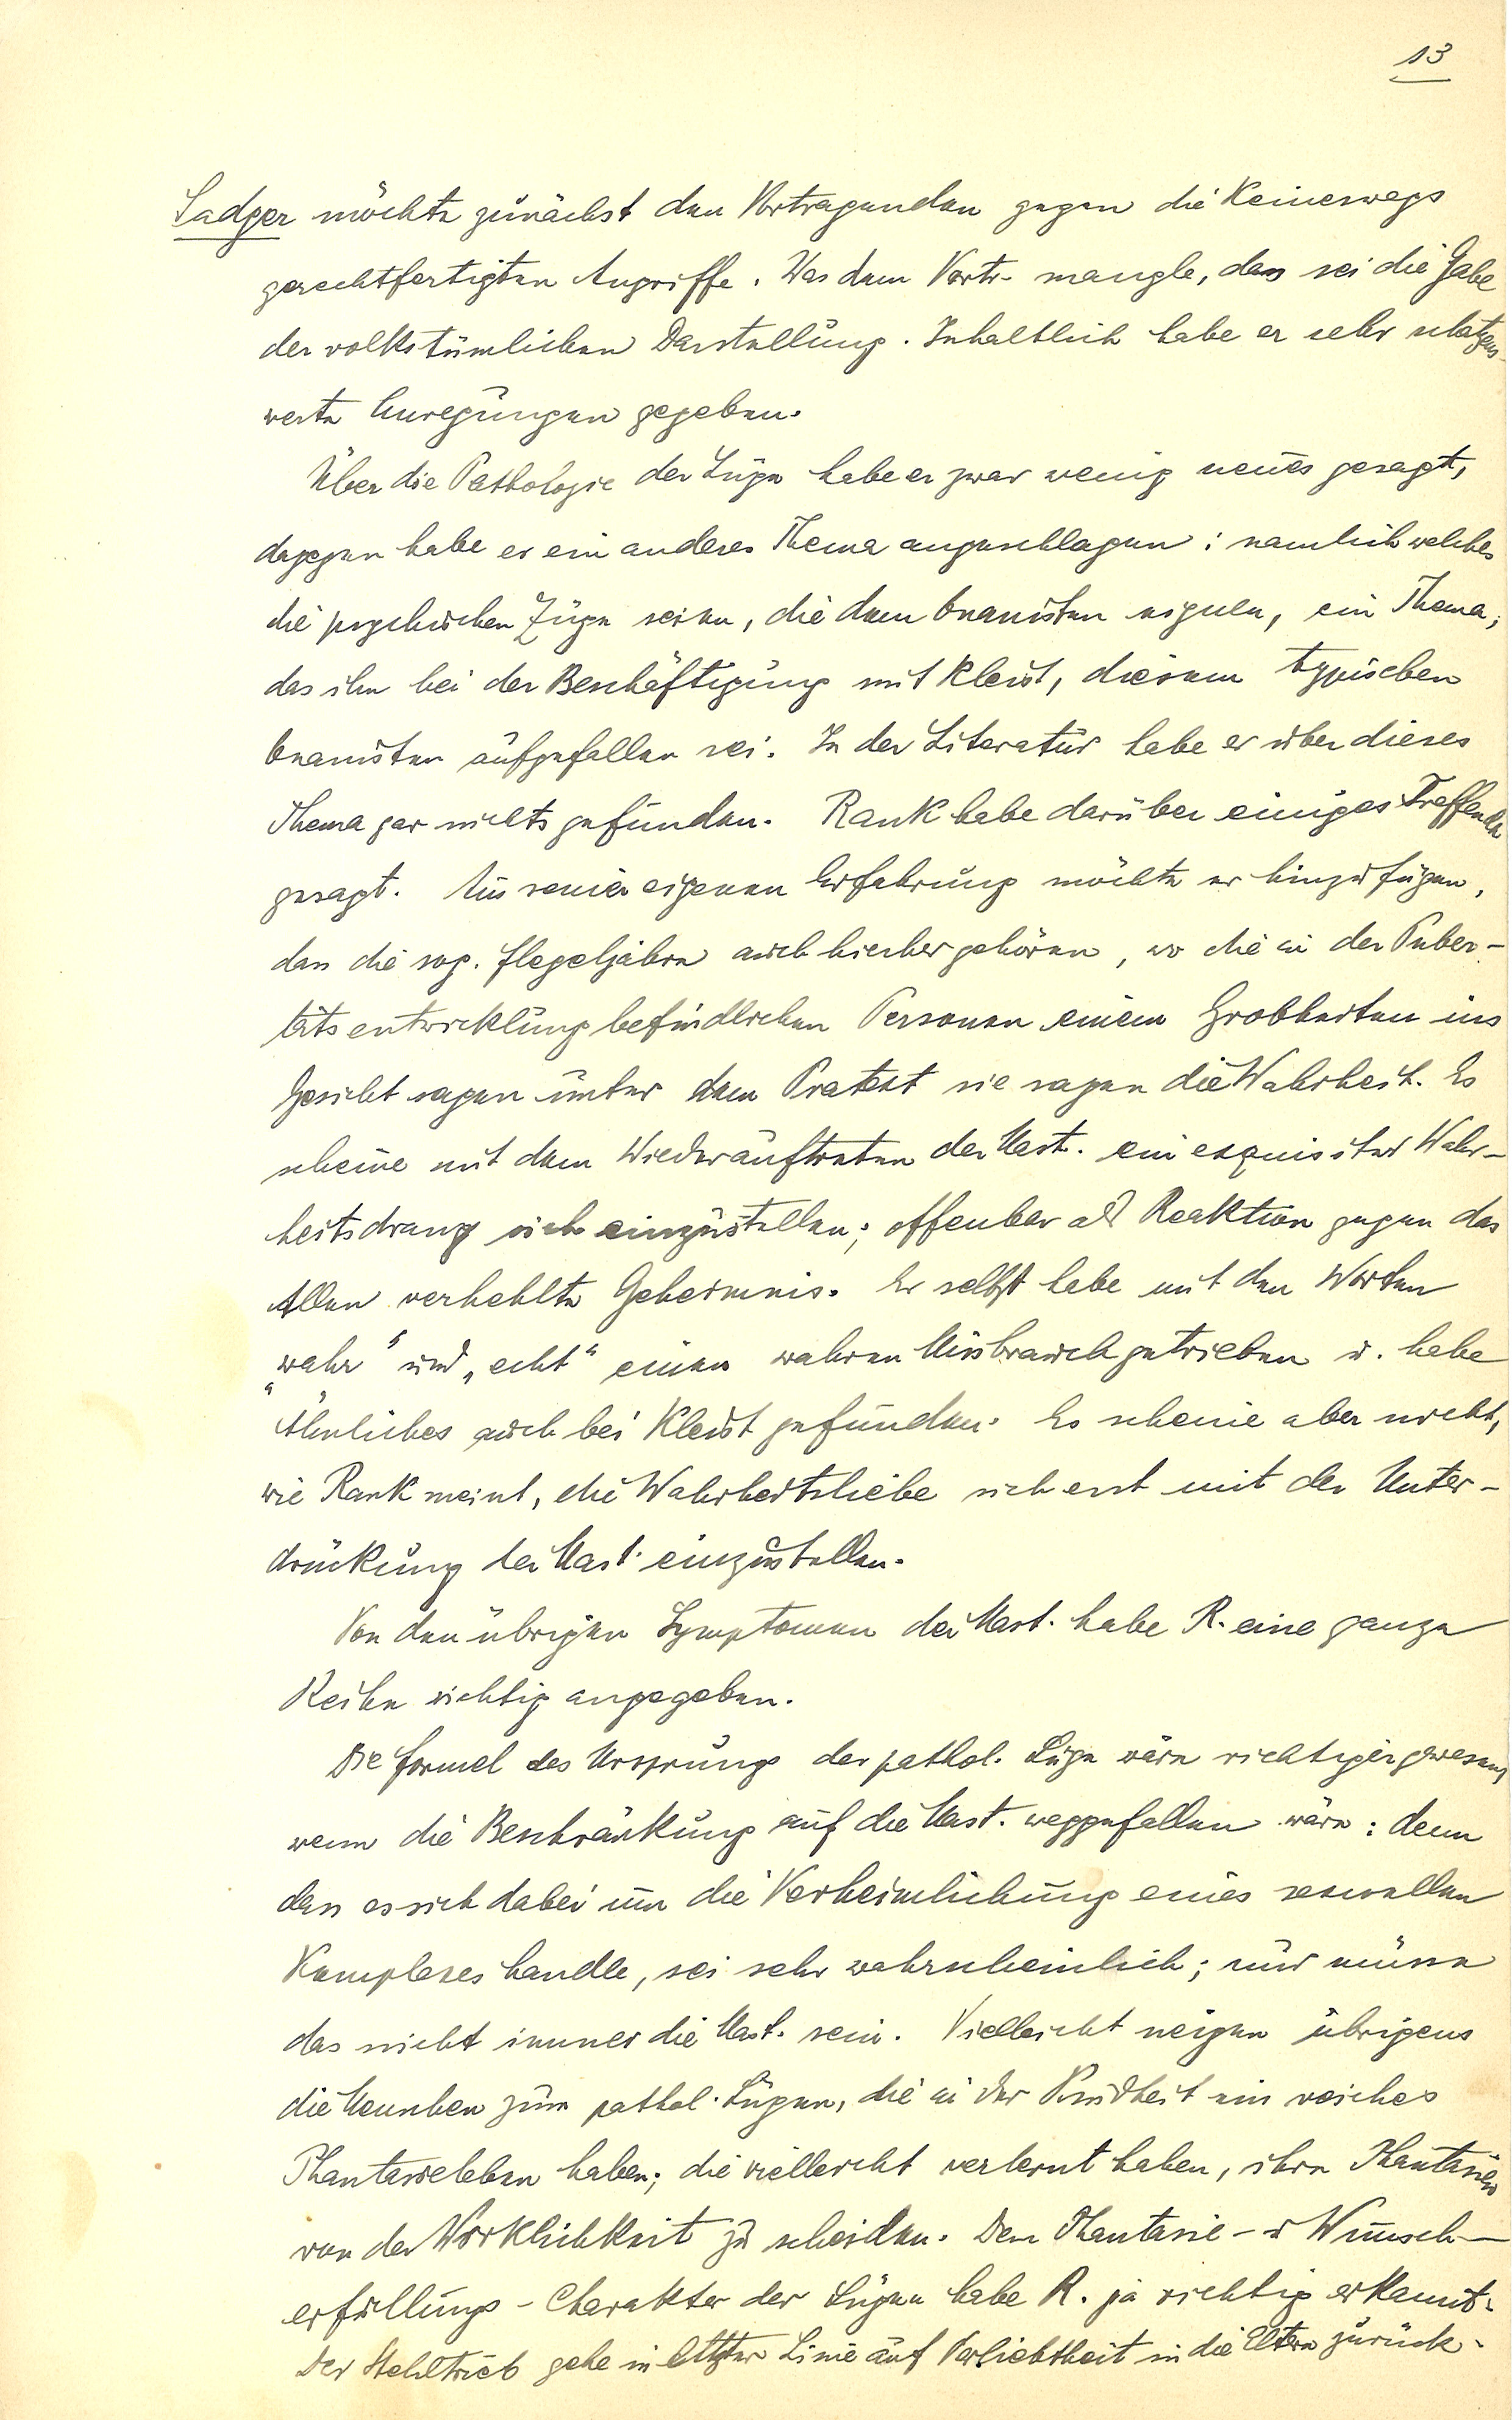 13
Sadger möchte zunächst den Vortragenden gegen die keineswegs
gerechtfertigten Angriffe. Was dem Vortr. mangle, das sei die Gabe
der volkstümlichen Darstellung. Inhaltlich habe er sehr schätzens-
werte Anregungen gegeben.
Über die Pathologie der Lüge habe er zwar wenig neues gesagt,
dagegen habe er ein anderes Thema angeschlagen: nämlich welches
die psychischen Züge seien, die dem Onanisten eignen, ein Thema,
das ihm bei der Beschäftigung mit Kleist, diesem typischen
Onanisten aufgefallen sei. In der Literatur habe er über dieses
Thema gar nichts gefunden. Rank habe darüber einiges Treffende
gesagt. Aus seiner eigenen Erfahrung möchte er hinzufügen,
dass die sog. Flegeljahre auch hierher gehören, wo die in der Puber-
tätsentwicklung befindlichen Personen einem Grobheiten ins
Gesicht sagen unter dem Pretext sie sagen die Wahrheit. Es
scheine mit dem Wiederauftreten der Mast. ein exquisiter Wahr-
heitsdrang sich einzustellen; offenbar als Reaktion gegen das
Allen verhehlte Geheimnis. Er selbst habe mit den Worten
„wahr" und „echt" einen wahren Missbrauch getrieben u. habe
Ähnliches auch bei Kleist gefunden. Es scheine aber nicht,
wie Rank meint, die Wahrheitsliebe sich erst mit der Unter-
drückung der Mast. einzustellen.
Von den übrigen Symptomen der Mast. habe R. eine ganze
Reihe richtig angegeben.
Die Formel des Ursprungs der pathol. Lüge wäre richtiger gewesen,
wenn die Beschränkung auf die Mast. weggefallen wäre: denn
dass es sich dabei um die Verheimlichung eines sexuellen
Komplexes handle, sei sehr wahrscheinlich; nur müsse
das nicht immer die Mast. sein. Vielleicht neigen übrigens
die Menschen zum pathol. Lügen, die in der Kindheit ein reiches
Phantasieleben haben; die vielleicht verlernt haben, ihre Phantasien
von der Wirklichkeit zu scheiden. Den Phantasie- u Wunsch-
erfüllungs-Charakter der Lügen habe R. ja richtig erkannt.
Der Stehltrieb gehe in letzter Linie auf Verliebtheit in die Eltern zurück.